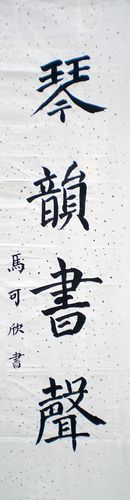 琴韻書聲
馬可欣書